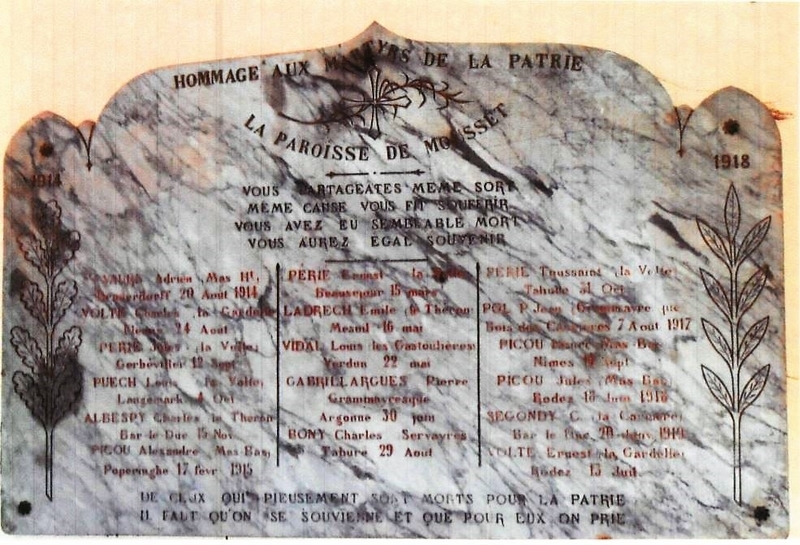 HOMMAGE AUX MARTYRS DE LA PATRIE
LA PAROISSE DE MOUSSET
1914
1918
VOUS PARTAGEATES MEME SORT
MÊME CAUSE VOUS FIT SOUFFRIR
VOUS AVEZ EU SEMBLABLE MORT
VOUS AUREZ EGAL SOUVENIR
Adrien Mas Ht,
20 Août 1914
VOLTE Charles la Gardelle
24 Aout
PERIE Jules la Volte,
Gerbéviller 12 Sept
PUECH Louis la Volte,
Langemark 4 Oct
ALBESPY Charles le Théron
Bar-le-Duc 15 Nov
PICOU Alexandre Mas Bas,
Poperinghe 17 fevr 1915
PERIE Ernest la Volte
Beausejour 15 mars
LADRECH Emile le Théron
16 mai
VIDAL Louis les Gastoulieres
Verdun 22 mai
GABRILLARGUES Pierre
Grammayresque
Argonne 30 juin
BONY Charles Servayres
Tahure 29 Aout
PERIE Toussaint la Volte
Tahulle 31 Oct
POL P Jean
Bois des 7 Aout 1917
PICOU Mas Bas
Nimes Sept
PICOU Jules Mas Bas
Rodez 18 Juin 1918
SEGONDY C. la
Bar le Duc, 28 Janv. 1919
VOLTE Ernest la Gardelle
Rodez 15 Juil.
DE CEUX QUI PIEUSEMENT SONT MORTS POUR LA PATRIE
IL FAUT QU'ON SE SOUVIENNE ET QUE POUR EUX ON PRIE